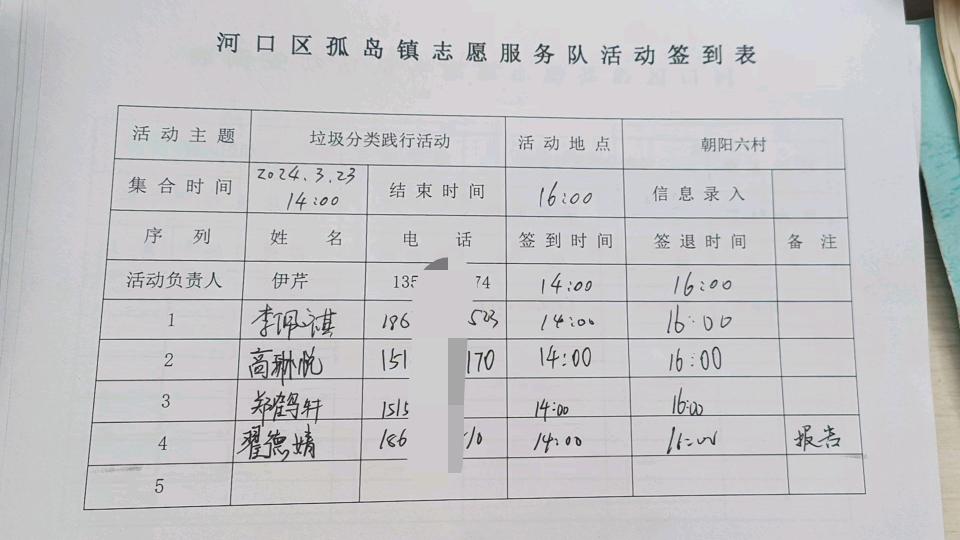 河口区孤岛镇志愿服务队活动签到表
活动主题 垃圾分类践行活动 活动地点 朝阳六村
集合时间 2024.3.23 14:00 结束时间 16:00 信息录入
序列 姓名 电话 签到时间 签退时间 备注
活动负责人 伊芹 135 74 14:00 16:00
1 李佩淇 186 523 14:00 16:00
2 高琳悦 151 170 14:00 16:00
3 郑鹤轩 1515 14:00 16:00
4 翟德婧 186 10 14:00 16:00 报告
5